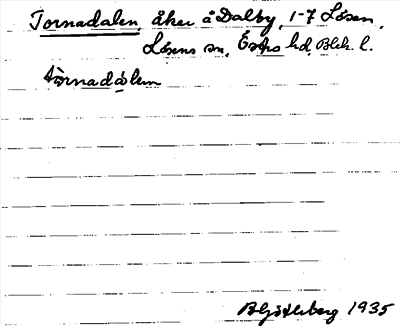 Tornadalen, åker å Dalby, 1-7 Lösen,
Lösens sn, Östra hd, Blek. l.
tòrnadàlen
1935